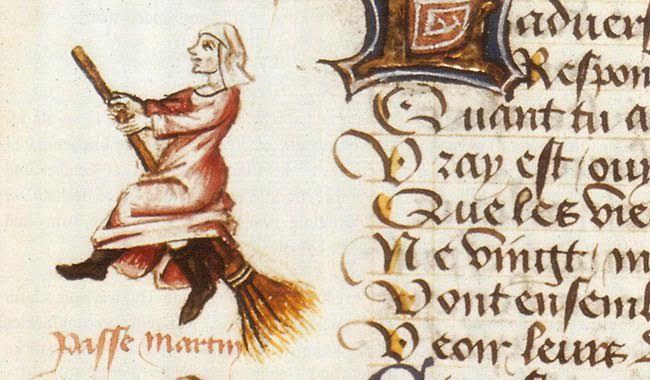 Ladvers
Respon
Quant tu a
Vray est / ouy
Que les vie
Ne vingt / n
Vont ensemb
Veoir leurs d
passe martin